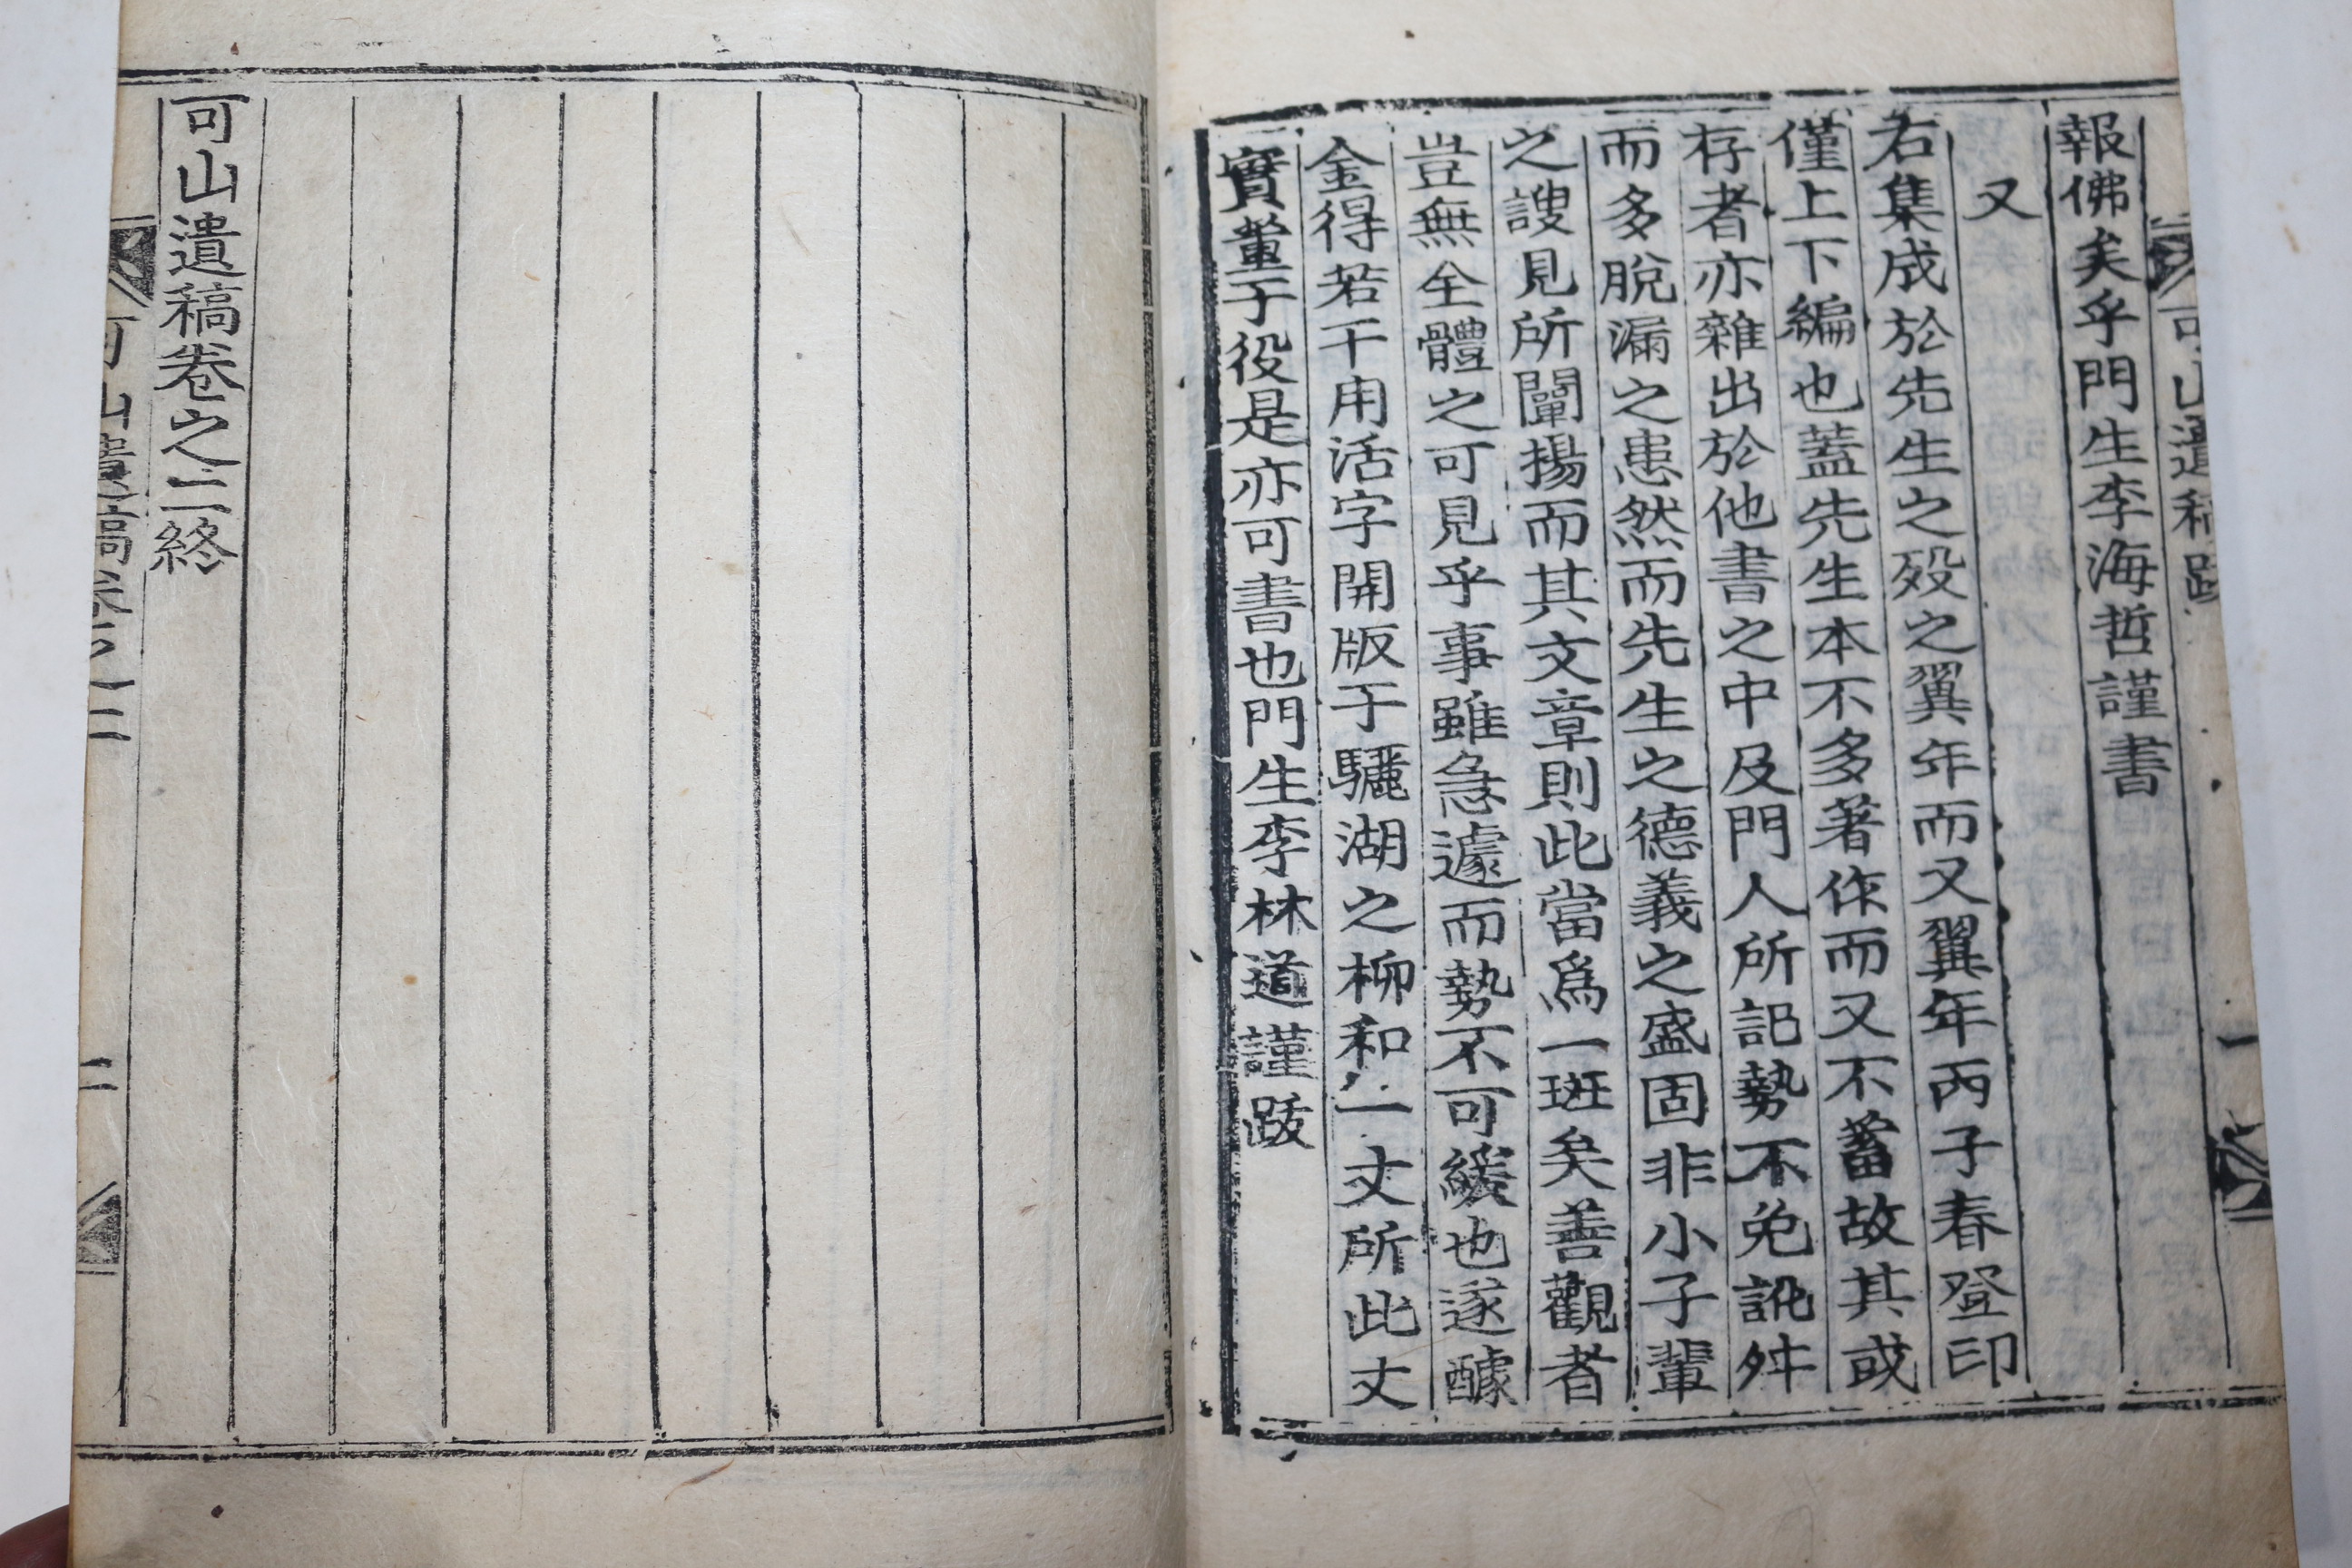 可山遺稿跋
一
報佛矣乎門生李海哲謹書
又
右集成於先生之歿之翼年而又翼年丙子春登印
僅上下編也蓋先生本不多著作而又不蓄故其或
存者亦雜出於他書之中及門人所記勢不免訛舛
而多脫漏之患然而先生之德義之盛固非小子輩
之謏見所闡揚而其文章則此當爲一斑矣善觀者
豈無全體之可見乎事雖急遽而勢不可緩也遂醵
金得若干用活字開版于驪湖之柳和一丈所此丈
實董于役是亦可書也門生李林道謹跋
可山遺稿卷之二終
可山遺稿卷之二
二